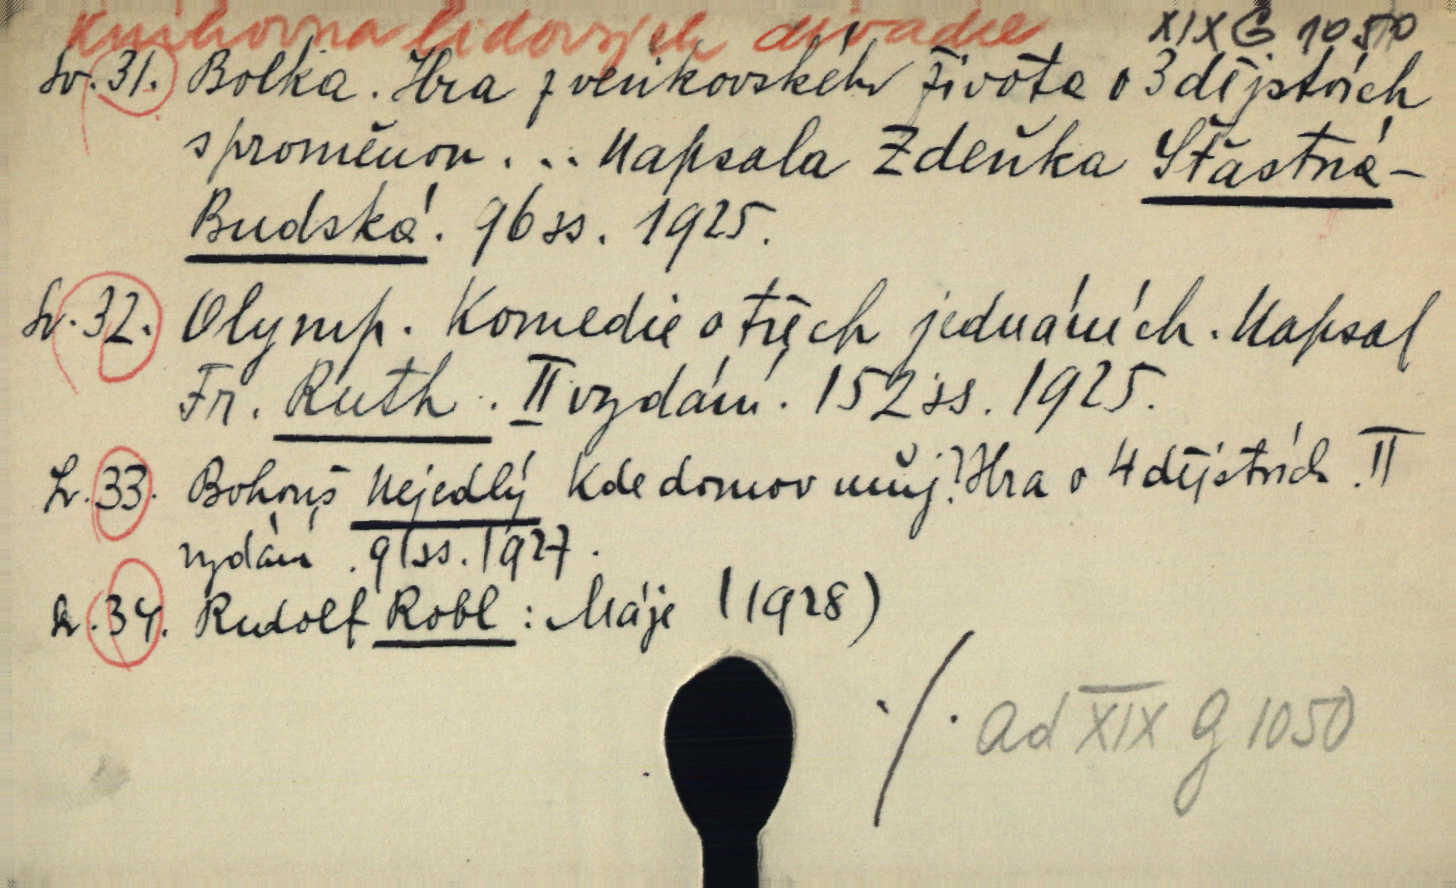 Knihovna lidových divadel XIX G 1050
Sv. 31. Bolka. Hra z venkovského života o 3 dějstvích
s proměnou... Napsala Zdeňka Šťastná-
Budská. 96 ss. 1925.
Sv. 32. Olymp. Komedie o třech jednáních. Napsal
Fr. Ruth. II vydání. 152 ss. 1925.
Sv. 33. Bohouš Nejedlý Kde domov můj? Hra o 4 dějstvích. II
vydání. 91 ss. 1927.
Sv. 34. Rudolf Robl: Máje (1928)
./. ad XIX G 1050